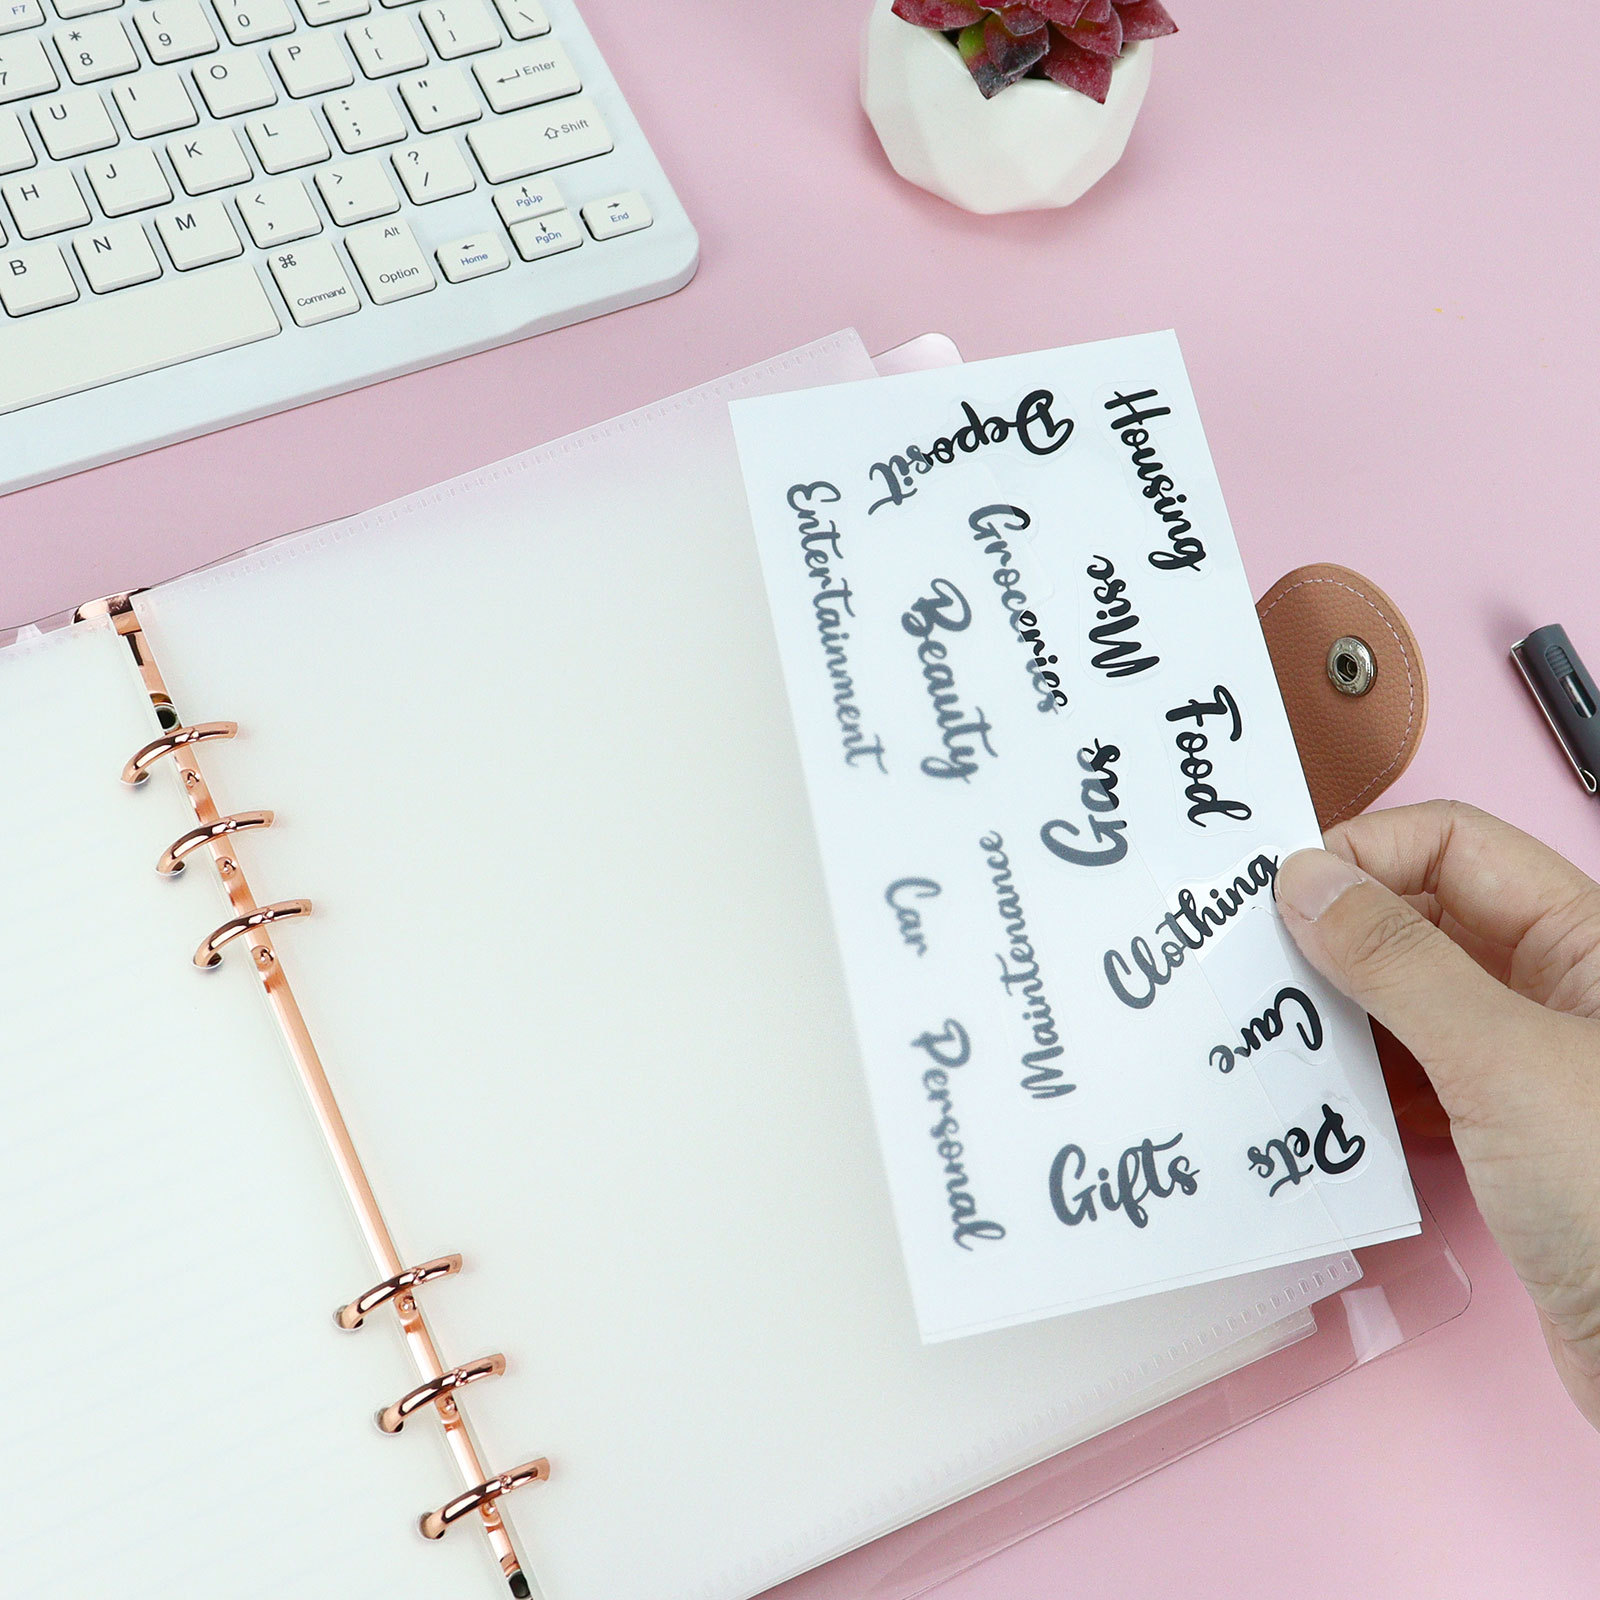 F7
7
* 8
( 9
) 0
_ -
+ =
U
I
O
P
{ [
} ]
Enter
H
J
K
L
: ;
" '
Shift
B
N
M
< ,
> .
? /
PgUp
Command
Alt Option
Home
PgDn
End
Housing
Deposit
Entertainment
Groceries
Misc
Beauty
Food
Gas
Clothing
Maintenance
Car
Care
Personal
Gifts
Pets